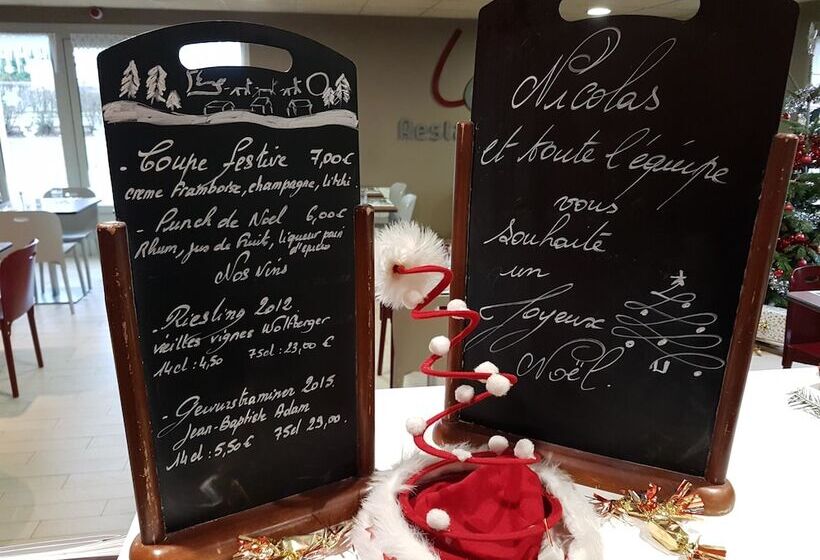 - Coupe festive 7,00€
creme framboise, champagne, litchi
- Punch de Noël 6,00€
Rhum, jus de fruit, liqueur pain
d'epice
Nos vins
- Riesling 2012
vieilles vignes Wolfberger
14cl : 4,50 75cl : 23,00 €
- Gewurstraminer 2015.
Jean-Baptiste Adam
14cl : 5,50 € 75cl 29,00.
Nicolas
et toute l'équipe
vous
souhaite
un
Joyeux
Noël.